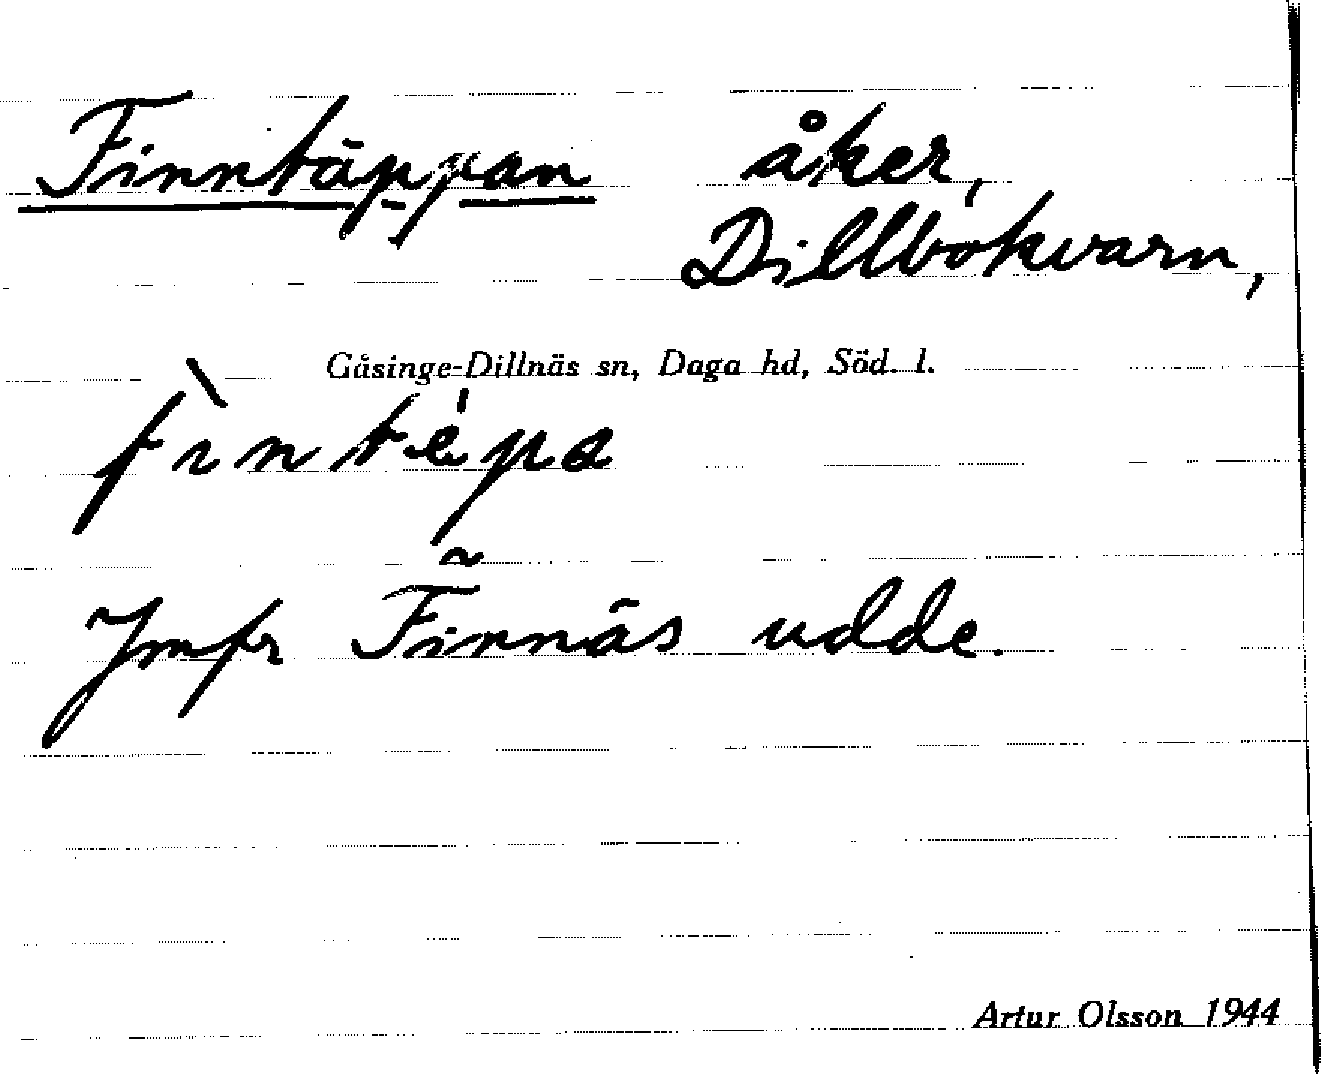 Finntäppan åker,
Dillbökvarn,
Gåsinge-Dillnäs sn, Daga hd, Söd. l.
fìntę́pa
Jmfr Finnäs udde.
Artur Olsson 1944